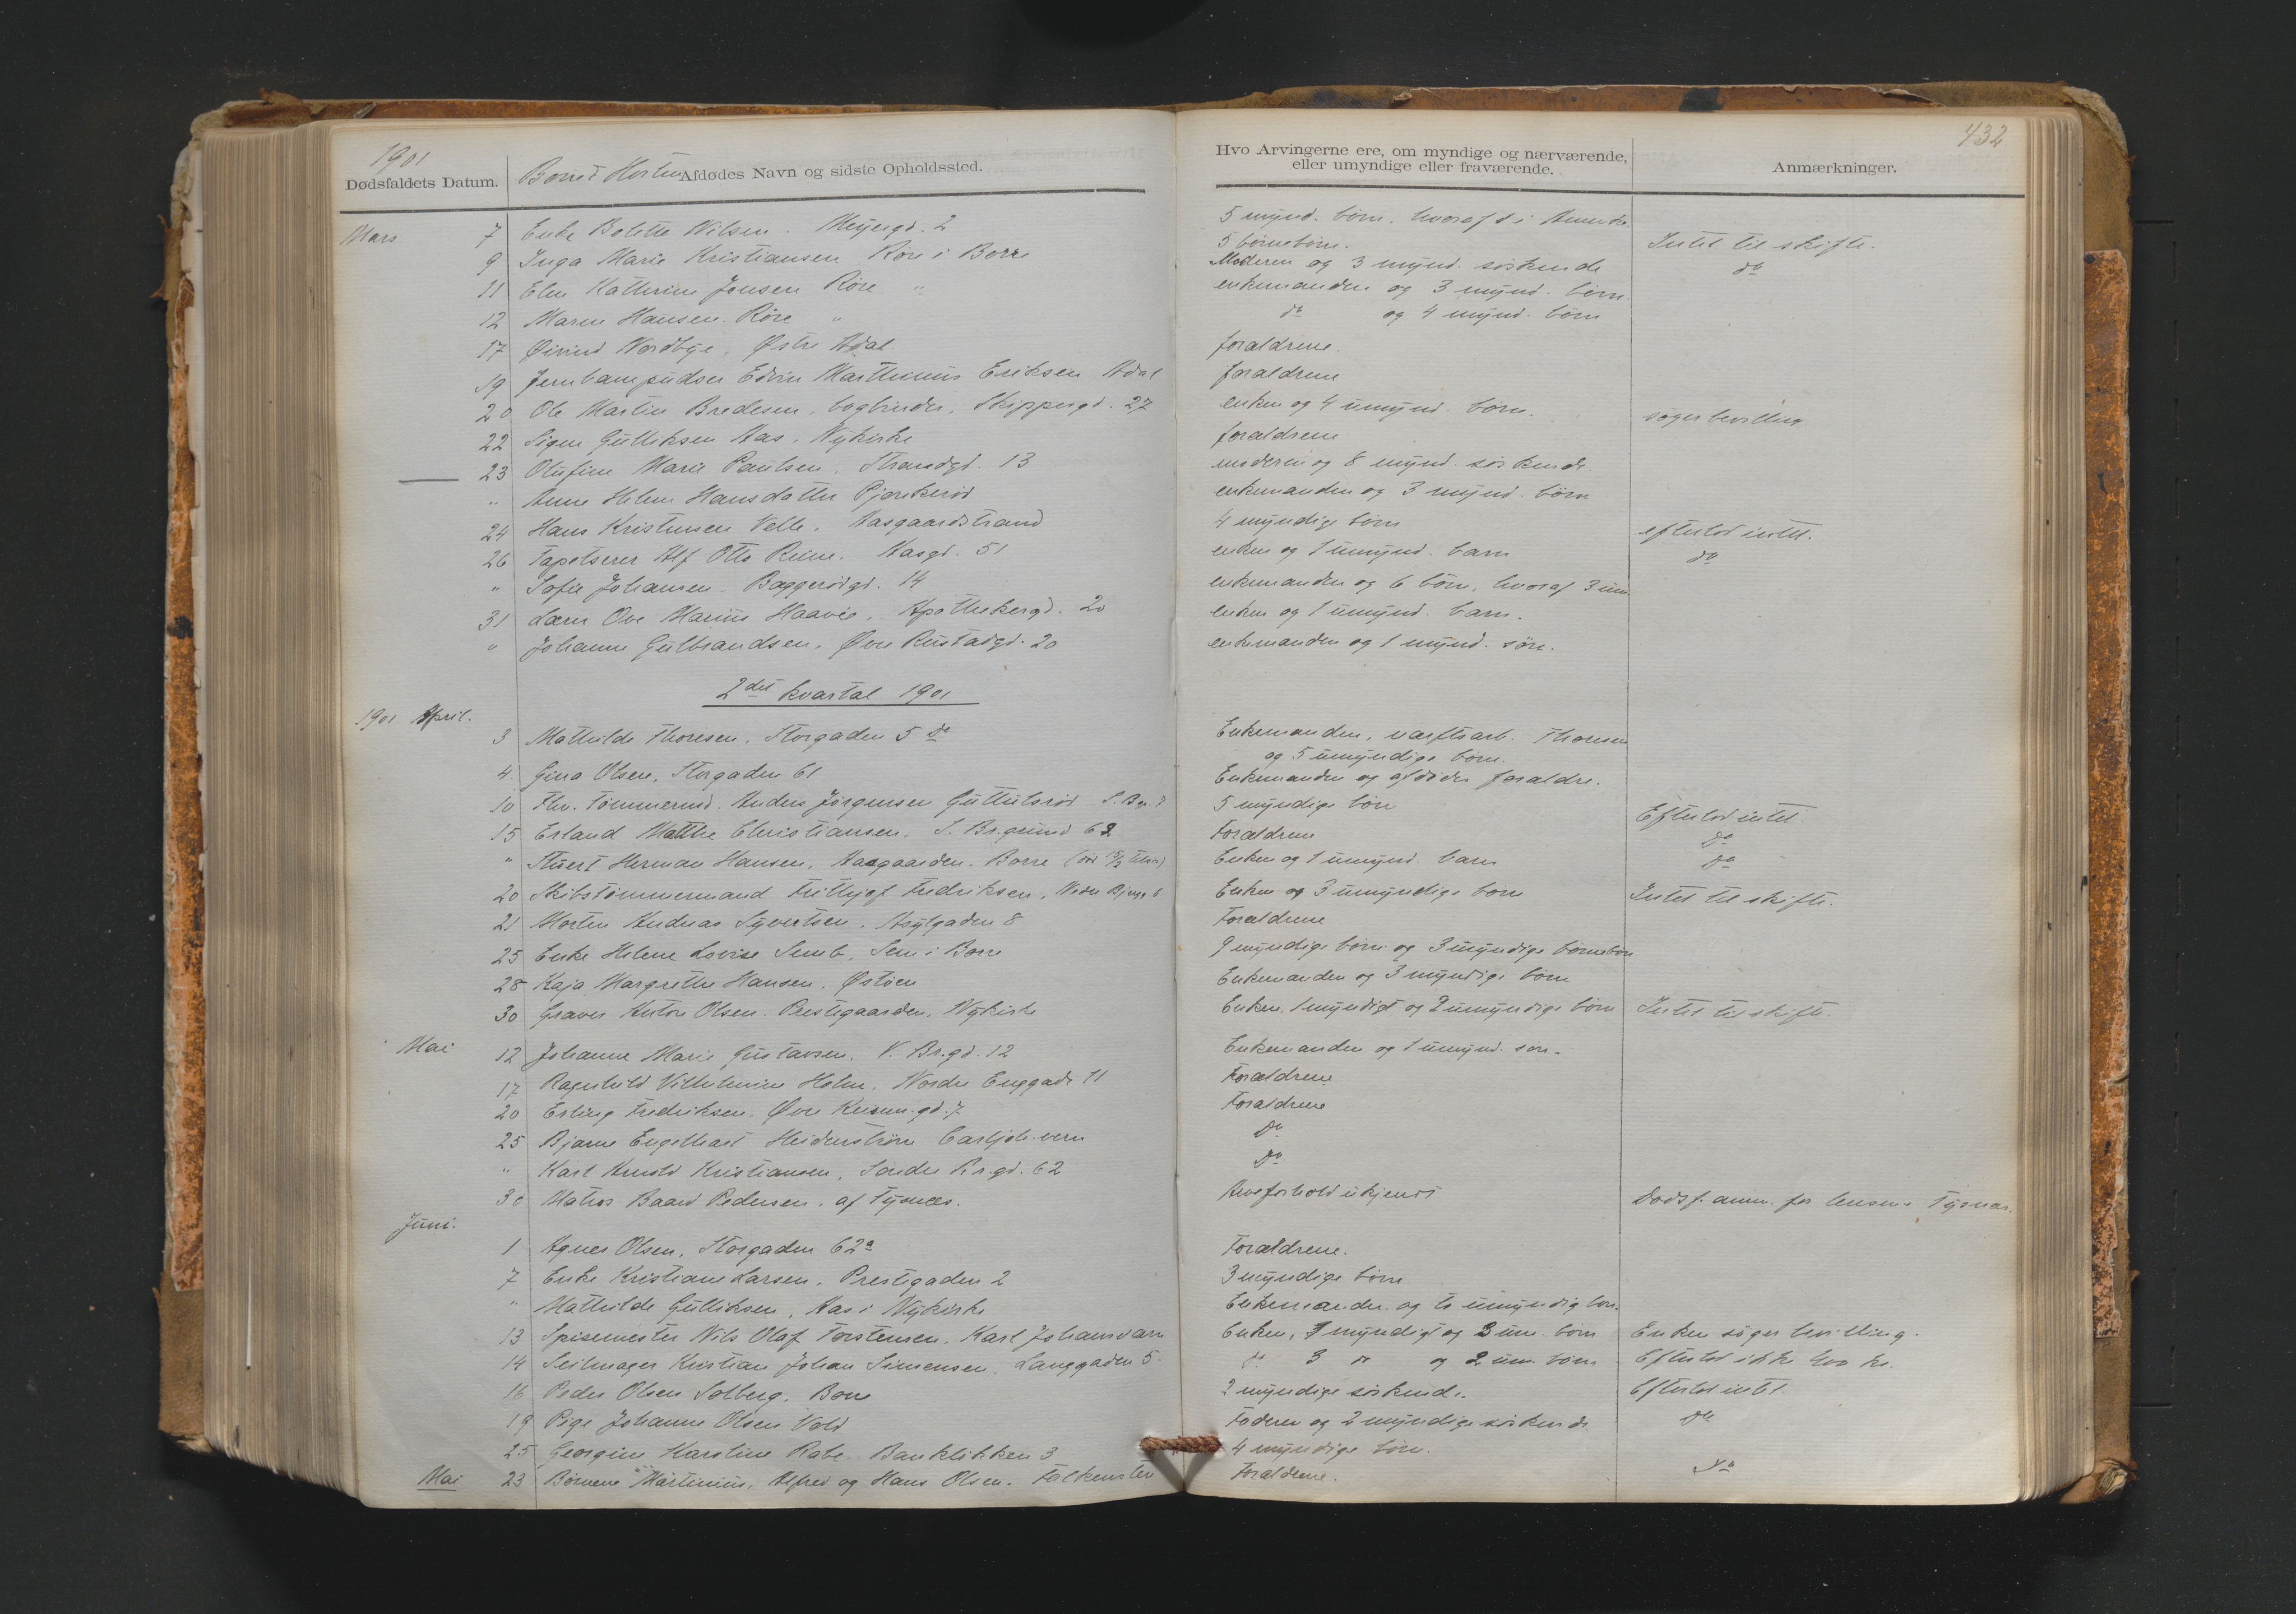 1901
432
Dødsfaldets Datum.
Borre & Horten
Afdødes Navn og sidste Opholdssted.
Hvo Arvingerne ere, om myndige og nærværende,
eller umyndige eller fraværende.
Anmærkninger.
Mars 7 Enke Bolette Nilsen. Meyergd. 2 5 mynd. børn, hvoraf 1 i
5 børnebørn. Intet til skifte.
9 Inga Marie Kristiansen Røre i Borre Moderen og 3 mynd. søskende do
11 Elen Kathrine Jonsen Røre " enkemanden og 3 mynd. børn.
12 Maren Hansen. Røre " do og 4 mynd. børn
17 Øivind Nordbye, Østre Adal forældrene.
19 Edvin Marthinius Eriksen Adal forældrene
20 Ole Martin Bredesen, bogbinder, Skippergd. 27 enken og 4 umynd. børn. søger bevilling
22 Signe Gulliksen Aas, Nykirke forældrene
23 Olufine Marie Paulsen, Strandgd. 13 moderen og 8 mynd. søskende
" Anne Helene Hansdatter enkemanden og 3 mynd. børn
24 Hans Kristensen Velle, Aasgaardstrand 4 myndige børn efterlod intet.
26 Tapetserer Alf Otto Reine. Aasgd. 51 enken og 1 umynd. barn do
" Sofie Johansen. Baggerødgd. 14 enkemanden og 6 børn, hvoraf 3 um
31 Lærer Ove Marius Haavie, Apothekergd. 20 enken og 1 umynd. barn.
" Johanne Gulbrandsen, Øvre Rustadgd. 20 enkemanden og 1 mynd. søn.
2det kvartal 1901
1901 April.
3 Mathilde Thoresen, Storgaden 5 Enkemanden, værftsarb. Thoresen
og 5 umyndige børn.
4 Gina Olsen, Storgaden 61 Enkemanden og afdødes forældre.
10 Fhv. Tømmermd. Anders Jørgensen 5 myndige børn Efterlod intet
15 Erland Christiansen, S. Br.grund 62 Forældrene do
" Herman Hansen, Aasgaarden, Borre Enken og 1 umynd. barn do
20 Skibstømmermand Frithjof Fredriksen, Enken og 3 umyndige børn Intet til skifte.
21 Morten Andreas Syvertsen, Asylgaden 8 Forældrene
25 Enke Helene Lovise Semb, Sem i Borre 9 myndige børn og 3 myndige børnebørn
28 Kaja Margrethe Hansen, Østøen Enkemanden og 3 myndige børn
30 Graver Anton Olsen. Prestegaarden, Nykirke Enken, 1 myndigt og 2 umyndige børn Intet til skifte.
Mai 12 Johanne Marie Gustavsen, V. Br.gd. 12 Enkemanden og 1 umynd. søn.
17 Ragnhild Vilhelmine Holm, Nordre Enggade 11 Forældrene
20 Erling Fredriksen, Øvre gd. 7 Forældrene
25 Bjarne Engelhart Heiderstrøm Carljoh.vern Do
" Karl Arnold Kristiansen, Søndre Br.gd. 62 Do
30 Matros Baard Pedersen, af Tysnæs. Arveforhold ukjendt Dødsf. anm. for lensm. i Tysnæs.
Juni.
1 Agnes Olsen, Storgaden 62a Forældrene.
7 Enke Kristiane Larsen, Prestegaden 2 3 myndige børn
" Mathilde Gulliksen, Aas i Nykirke Enkemanden og to umyndig børn.
13 Spisemester Nils Olaf Torstensen, Karl Johansværn Enken, 1 myndigt og 3 um. børn Enken søger bevilling.
14 Seilmager Kristian Johan Simensen, Langgaden 5 do 3 do og 2 um. børn Efterlod ikke 400 kr.
16 Peder Olsen Solberg, Borre 2 myndige søskende. Efterlod intet
19 Pige Johanne Olsen Vold Faderen og 2 myndige søskende do
25 Georgine Karoline Rabe Bankløkken 3 4 myndige børn.
Mai 23 Børnene Martinius, Alfred og Hans Olsen. Falkensten Forældrene. do